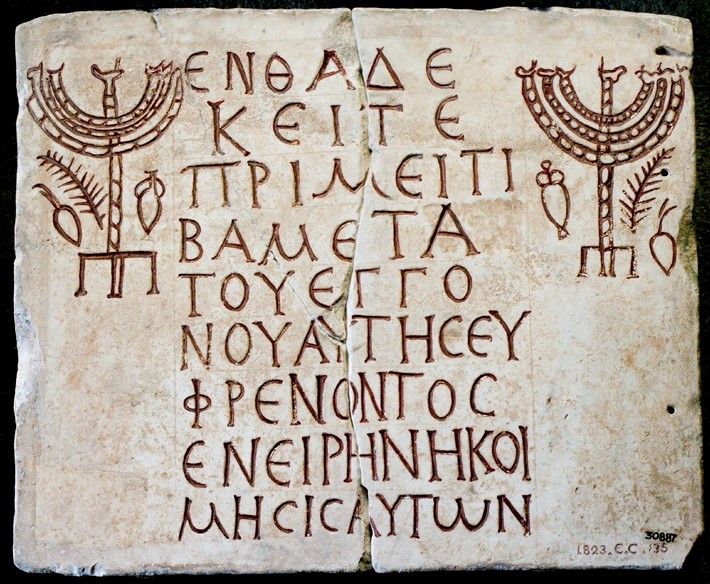 ΕΝΘΑΔΕ
ΚΕΙΤΕ
ΠΡΙΜΕΙΤΙ
ΒΑΜΕΤΑ
ΤΟΥΕΓΓΟ
ΝΟΥΑΥΤΗϹΕΥ
ΦΡΕΝΟΝΤΟϹ
ΕΝΕΙΡΗΝΗΚΟΙ
ΜΗϹΙϹΑΥΤωΝ
30887
1823.C.C.135